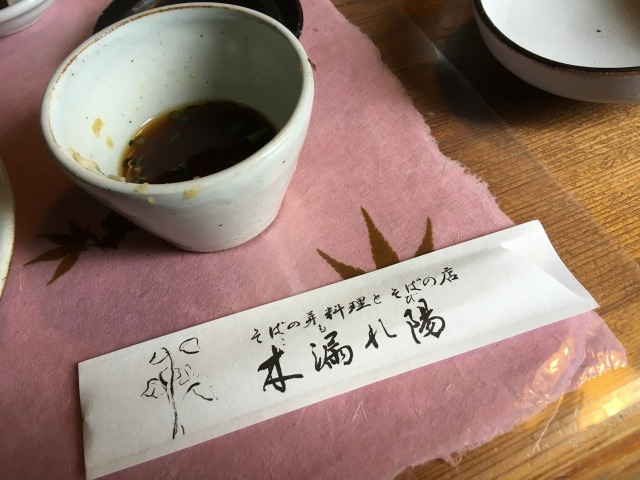 そばの料理とそばの店
こ も び
木漏れ陽